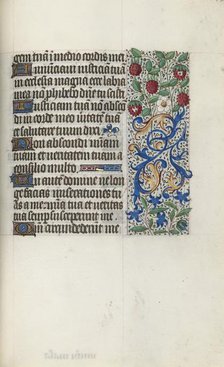 gem tuā ī medio cordis mei
Annunciaui iusticiā tuā
in ecclesia magna ecce labia
mea nō phibebo dn̄e tu scisti
Iusticiam tuā nō abscō
di in corde meo ūitatē tuā
et salutare tuum dixi
Non abscondi mīam
tuam et veritatem tuam a
consilio multo
Tu autē domine ne lon
ge facias miserationes tu
as a me mīa tua et veritas
tua semp susceperunt me
Qm̄ circundederunt me